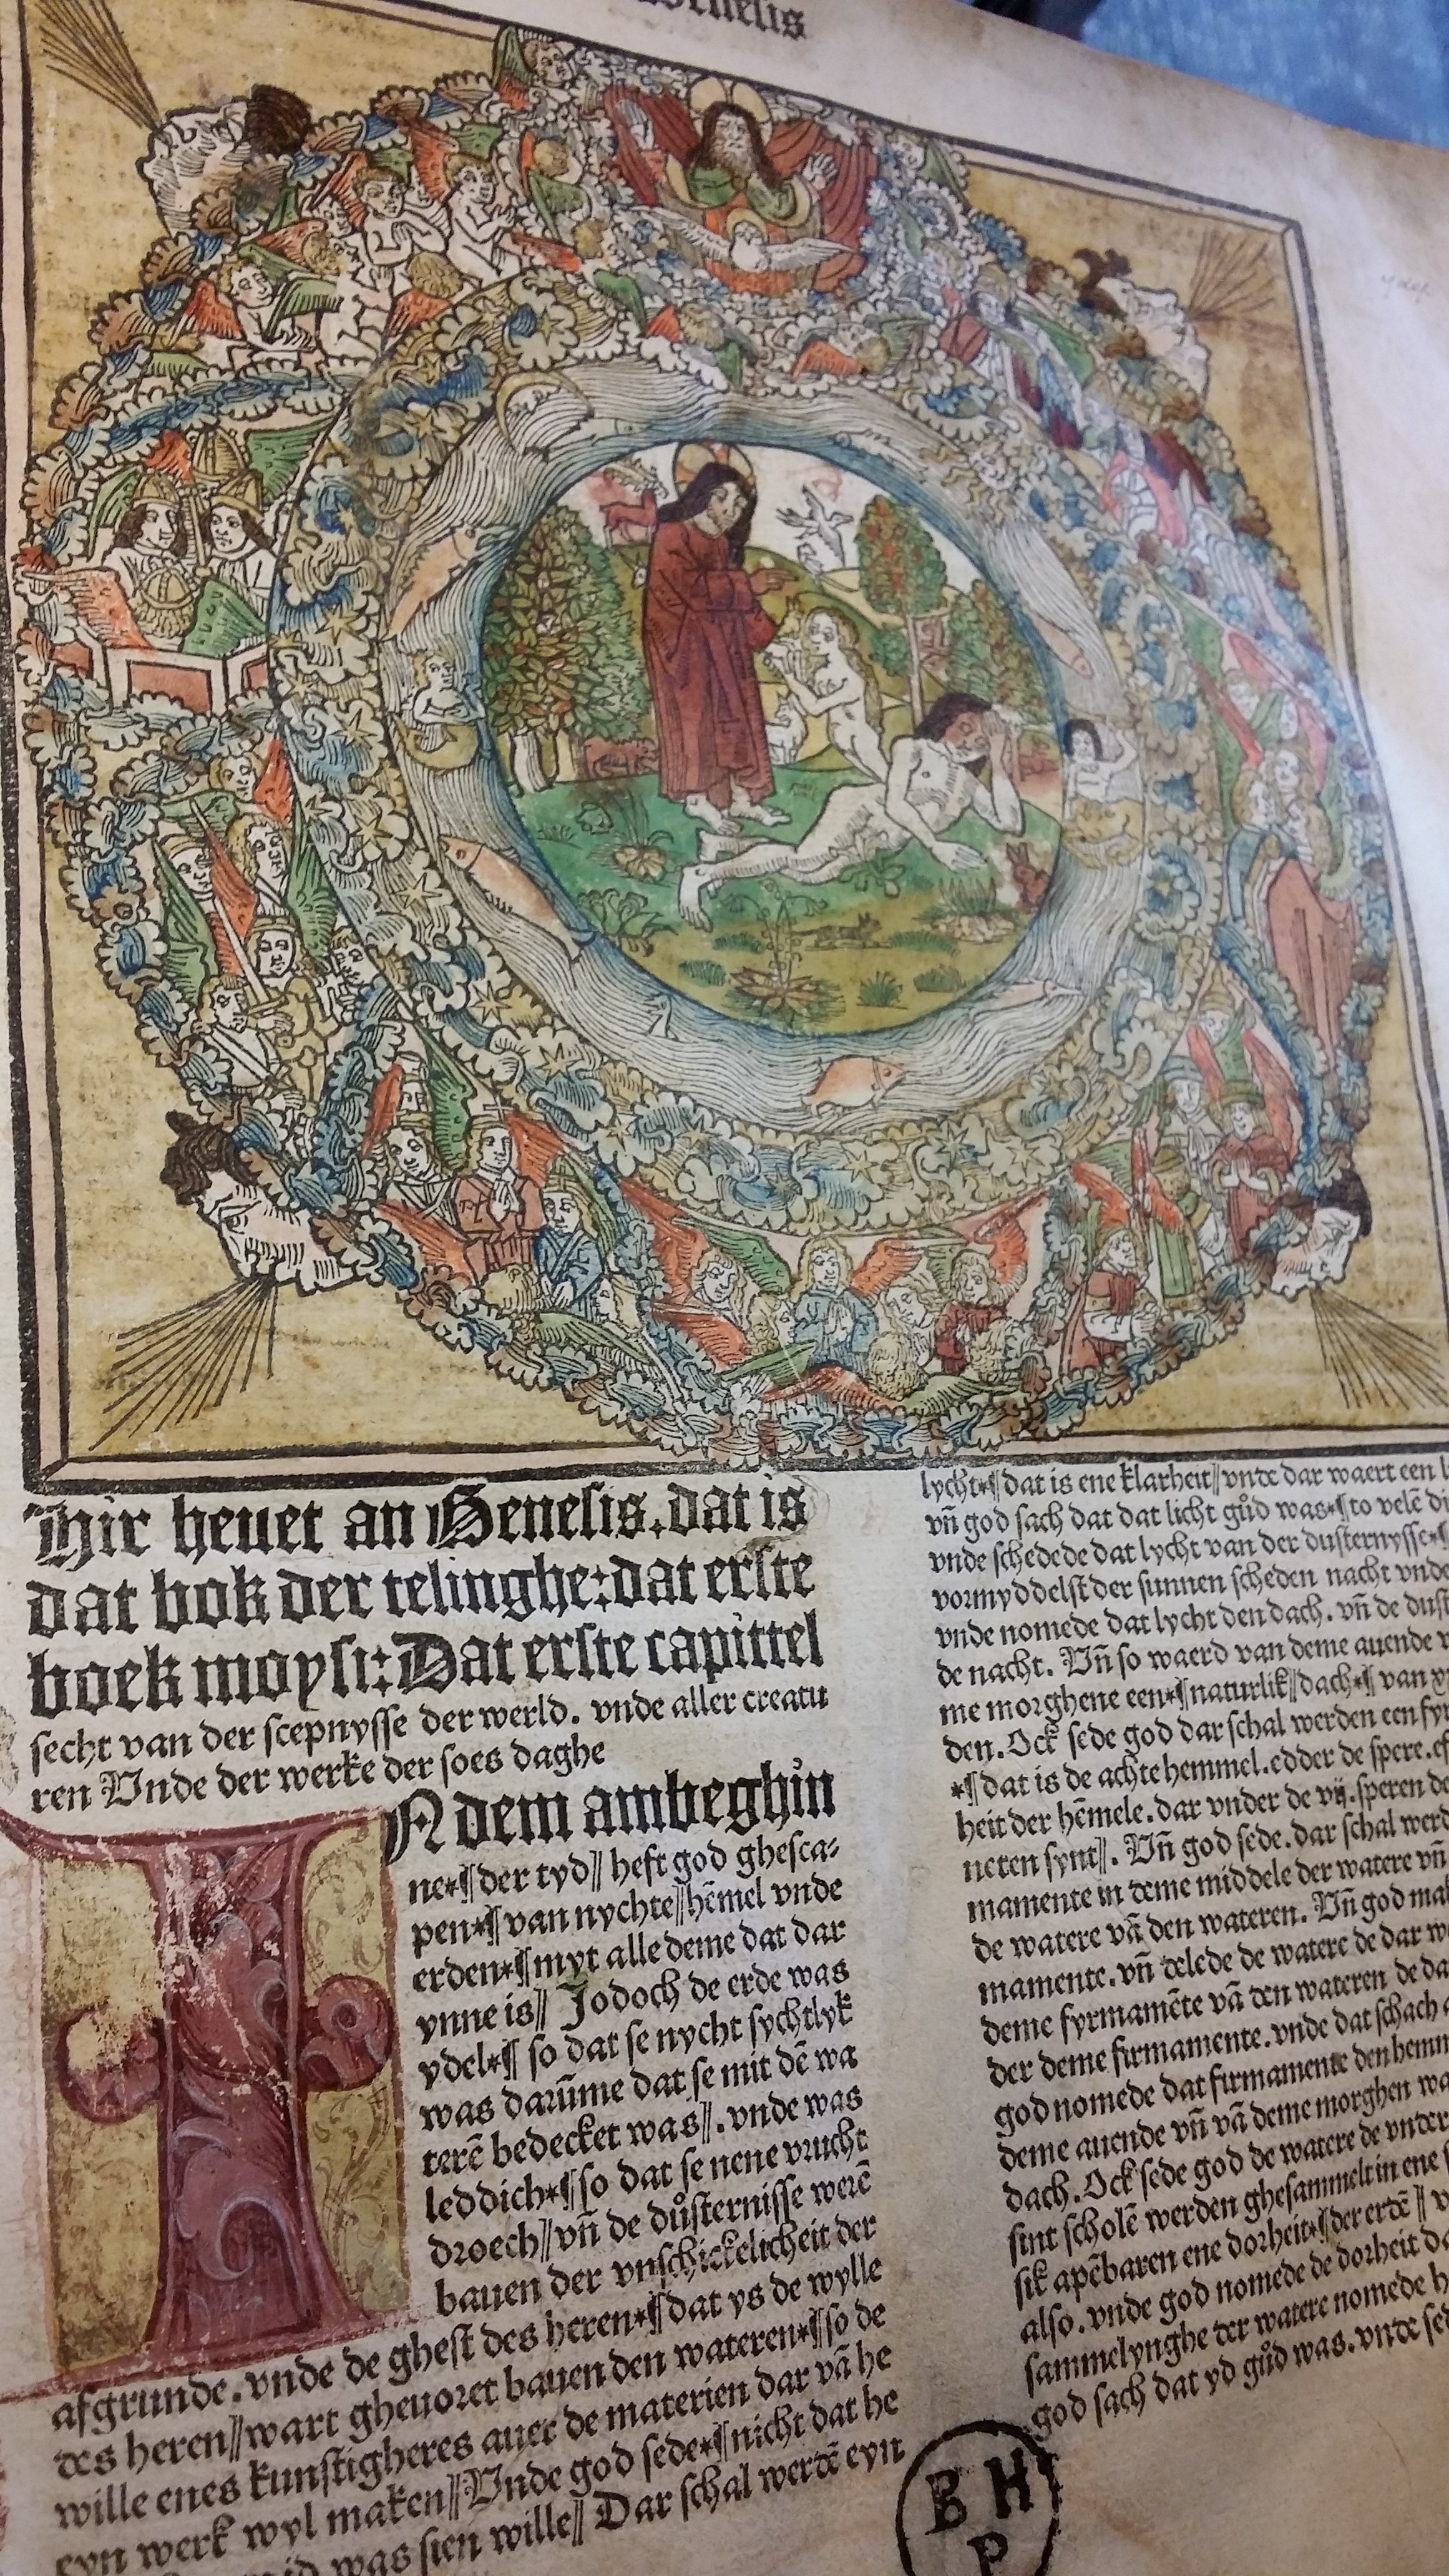 Genesis
Hir heuet an Genesis. dat is
dat bok der telinghe: dat erste
boek moysi: Dat erste capittel
secht van der scepnysse der werld. vnde aller creatu
ren Vnde der werke der soes daghe
N dem ambeghin
ne*¶der tyd|| heft god ghesca-
pen*¶van nychte||hēmel vnde
erden*¶myt alle deme dat dar
ynne is|| Jodoch de erde was
ydel*¶ so dat se nycht sychtlyk
was darūme dat se mit dē wa
terē bedecket was||. vnde was
leddich*¶so dat se nene vrucht
droech||vn̄ de důsternisse werē
bauen der vnschickelicheit der
afgrunde. vnde de ghest des heren*¶dat ys de wylle
des heren||wart gheuoret bauen den wateren*¶so de
wille enes kunstigheres auer de materien dar vā he
eyn werk wyl maken||Vnde god sede*¶nicht dat he
was sien wille|| Dar schal werdē eyn
lycht*¶dat is ene klarheit||vnde dar waert een
vn̄ god sach dat dat licht gůd was*¶to velē
vnde schedede dat lycht van der dusternysse*¶
vormyddelst der sunnen scheden nacht vnde
vnde nomede dat lycht den dach. vn̄ de
de nacht. Vn̄ so waerd van deme auende
me morghene een*¶naturlik||dach*¶ van
den. Ock sede god dar schal werden een
*¶dat is de achte hemmel. edder de spere.
heit der hēmele. dar vnder de vij. speren
neten synt||. Vn̄ god sede. dar schal
mamente in deme middele der watere vn̄
de watere vā den wateren. Vn̄ god
mamente. vn̄ delede de watere de dar
deme fyrmamēte vā den wateren de
der deme firmamente. vnde dat schach
god nomede dat firmamente den
deme auende vn̄ vā deme morghen
dach. Ock sede god de watere de
sint scholē werden ghesammelt in ene
sik apēbaren ene dorheit*¶der erdē||
also. vnde god nomede de dorheit
sammelynghe der watere nomede
god sach dat yd gůd was. vnde
B H
P